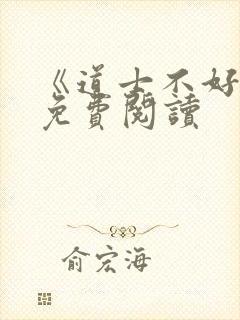 《道士不好
免費閱讀
俞宏海